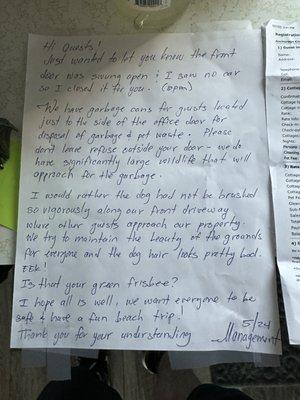 Hi Guests!
Just wanted to let you know the front
door was swung open & I saw no car
so I closed it for you. (10pm)
We have garbage cans for guests located
just to the side of the office door for
disposal of garbage & pet waste. Please
don't leave refuse outside your door - we do
have significantly large wildlife that will
approach for the garbage.
I would rather the dog had not be brushed
so vigorously along our front driveway
where other guests approach our property.
We try to maintain the beauty of the grounds
for everyone and the dog hair looks pretty bad.
EEK!
Is that your green frisbee?
I hope all is well, we want everyone to be
safe & have a fun beach trip!
5/24
Thank you for your understanding
Management
Registration
1) Guest
Name:
Address:
2) Cottage